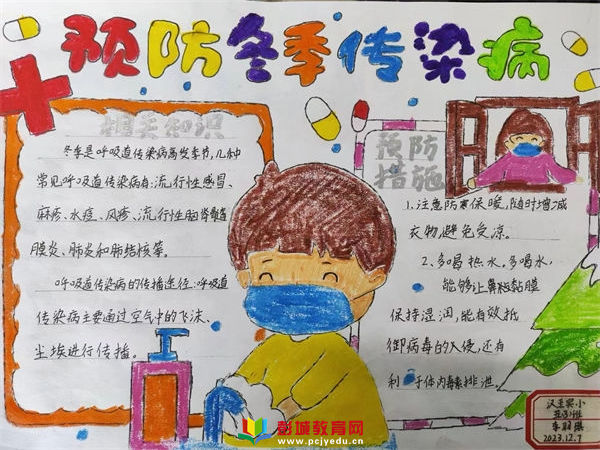 预防冬季传染病
相关知识
冬季是呼吸道传染病高发季节,几种
常见呼吸道传染病有:流行性感冒、
麻疹、水痘、风疹、流行性脑脊髓
膜炎、肺炎和肺结核等。
呼吸道传染病的传播途径:呼吸道
传染病主要通过空气中的飞沫、
尘埃进行传播。
预防
措施
1、注意防寒保暖,随时增减
衣物避免受凉。
2、多喝热水,多喝水,
能够让鼻粘黏膜
保持湿润,能有效抵
御病毒的入侵,还有
利于体内毒素排泄。
汉王实小
2023.12.7
彭城教育网
www.pcjyedu.cn